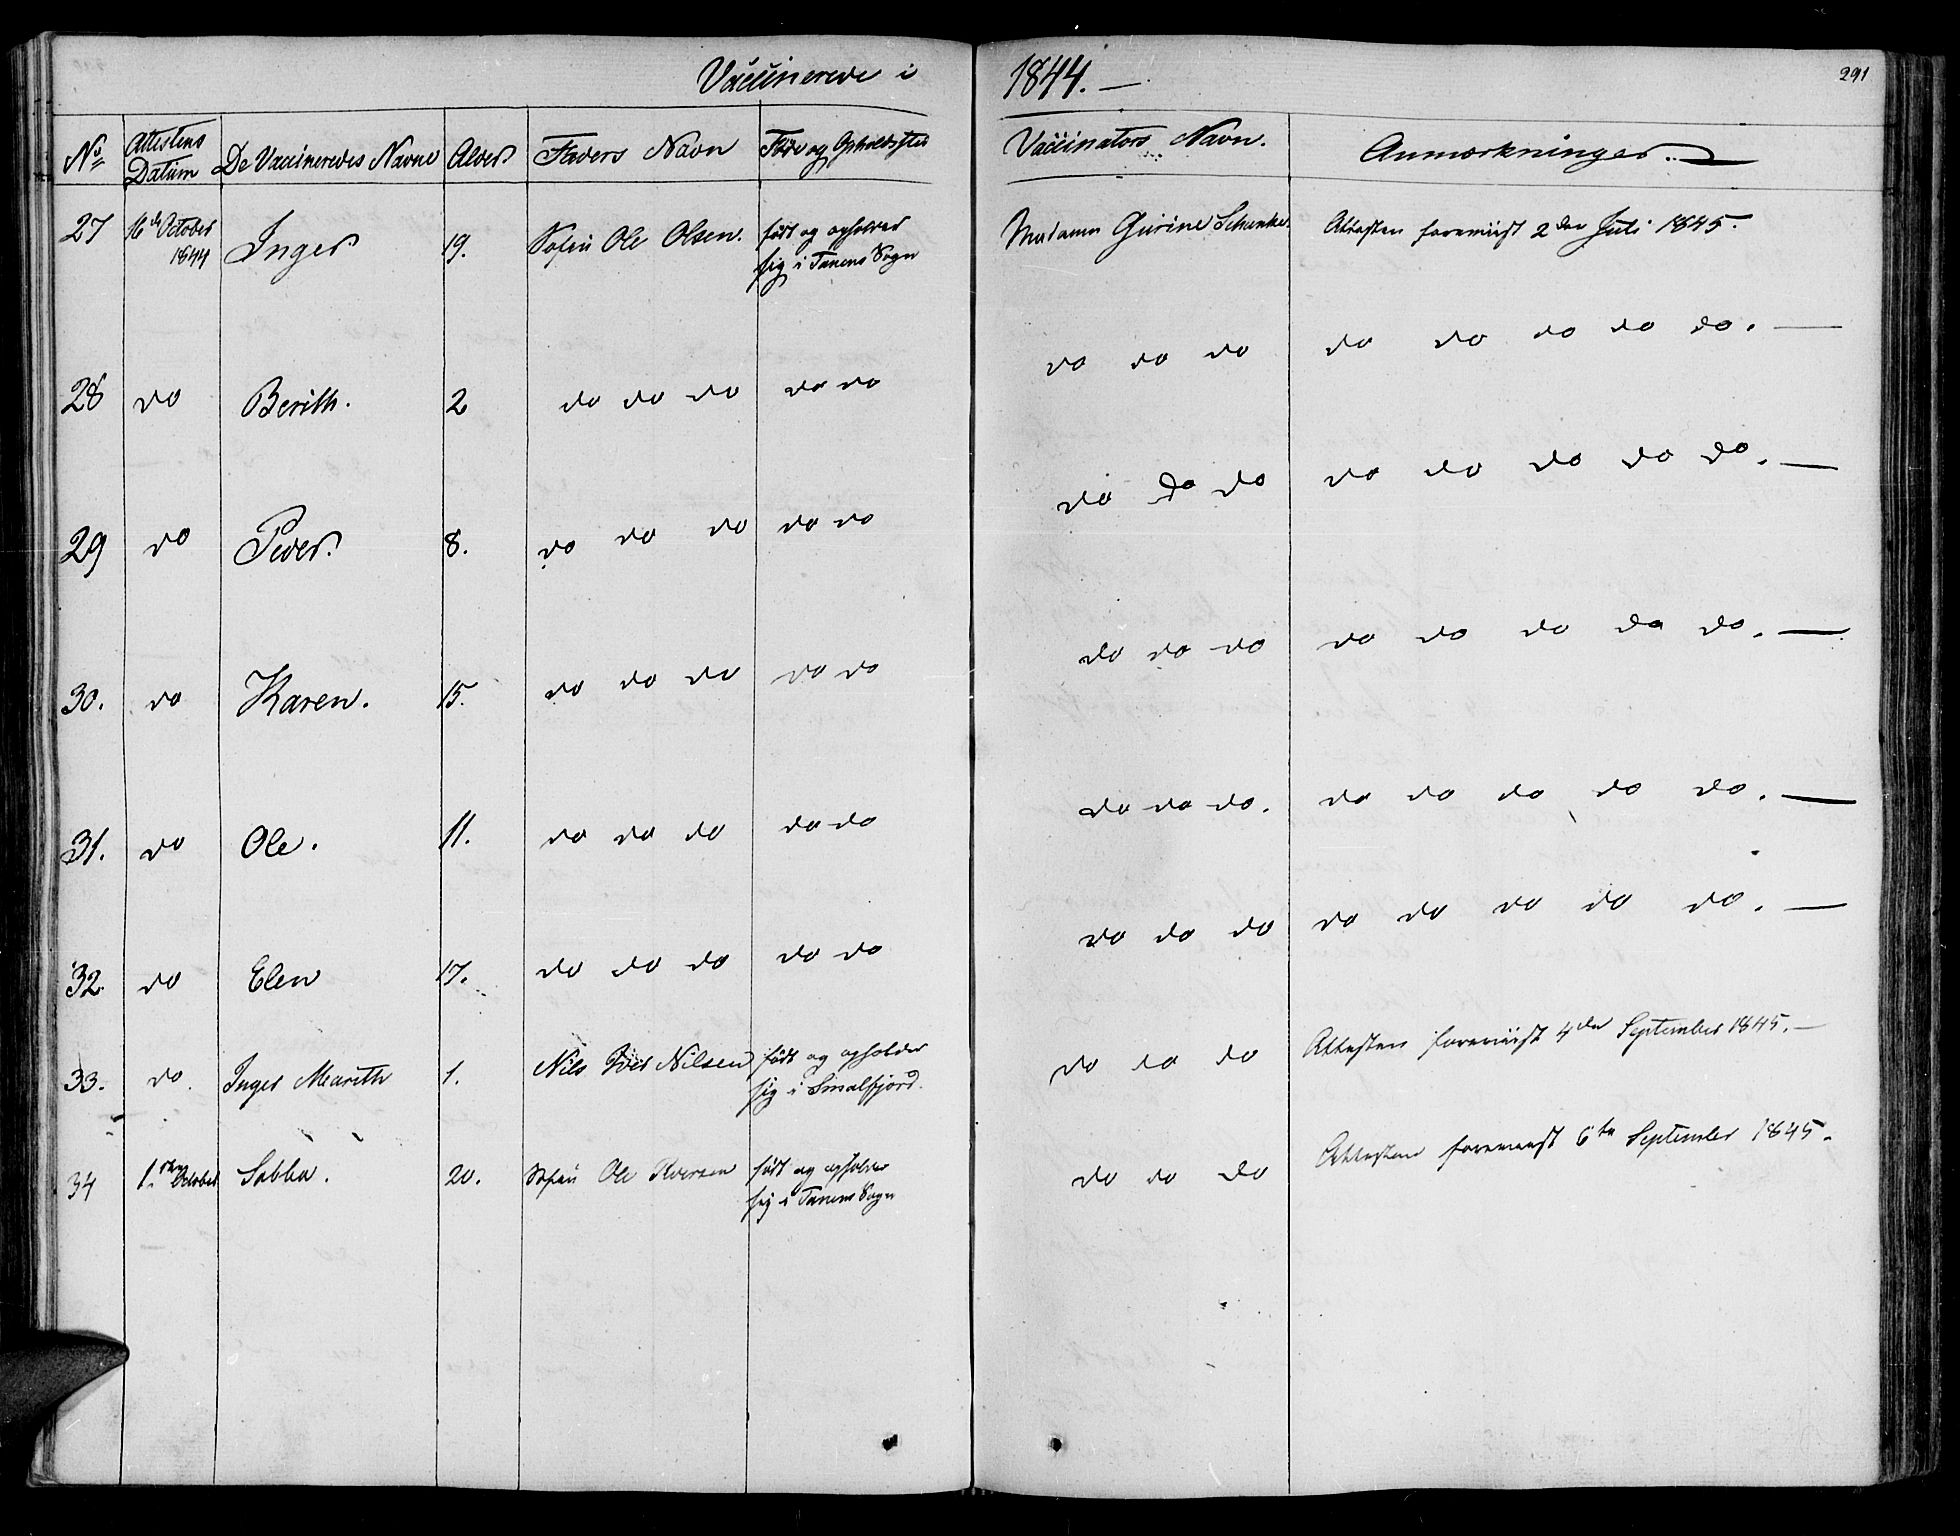 Vaccinerede i 1844. —
291
No Attestens Datum De Vaccineredes Navne Alder Faders Navn Føde og Opholdssted Vaccinators Navn. Anmærkninger. —
27 16de October 1844 Inger 19. Søfin Ole Olsen. født og opholder sig i Tanens Sogn Madamm Gurine Schanke. Attesten foreviist 2den Juli 1845.
28 do Berith. 2 do do do do do do do do do do do do do. —
29 do Peder. 8. do do do do do do do do do do do do do. —
30. do Karen. 15. do do do do do do do do do do do do do. —
31. do Ole. 11. do do do do do do do do. do do do do do. —
32. do Elen 17. do do do do do do do do do do do do do. —
33. do. Inger Marith 1. Nils Nilsen født og opholder sig i Smalfjord. do do do Attesten foreviist 4de September 1845. —
34 1ste October Sabba. 20. Søfin Ole Iversen født og opholder sig i Tanens Sogn do do do Attesten foreviist 6te September 1845.